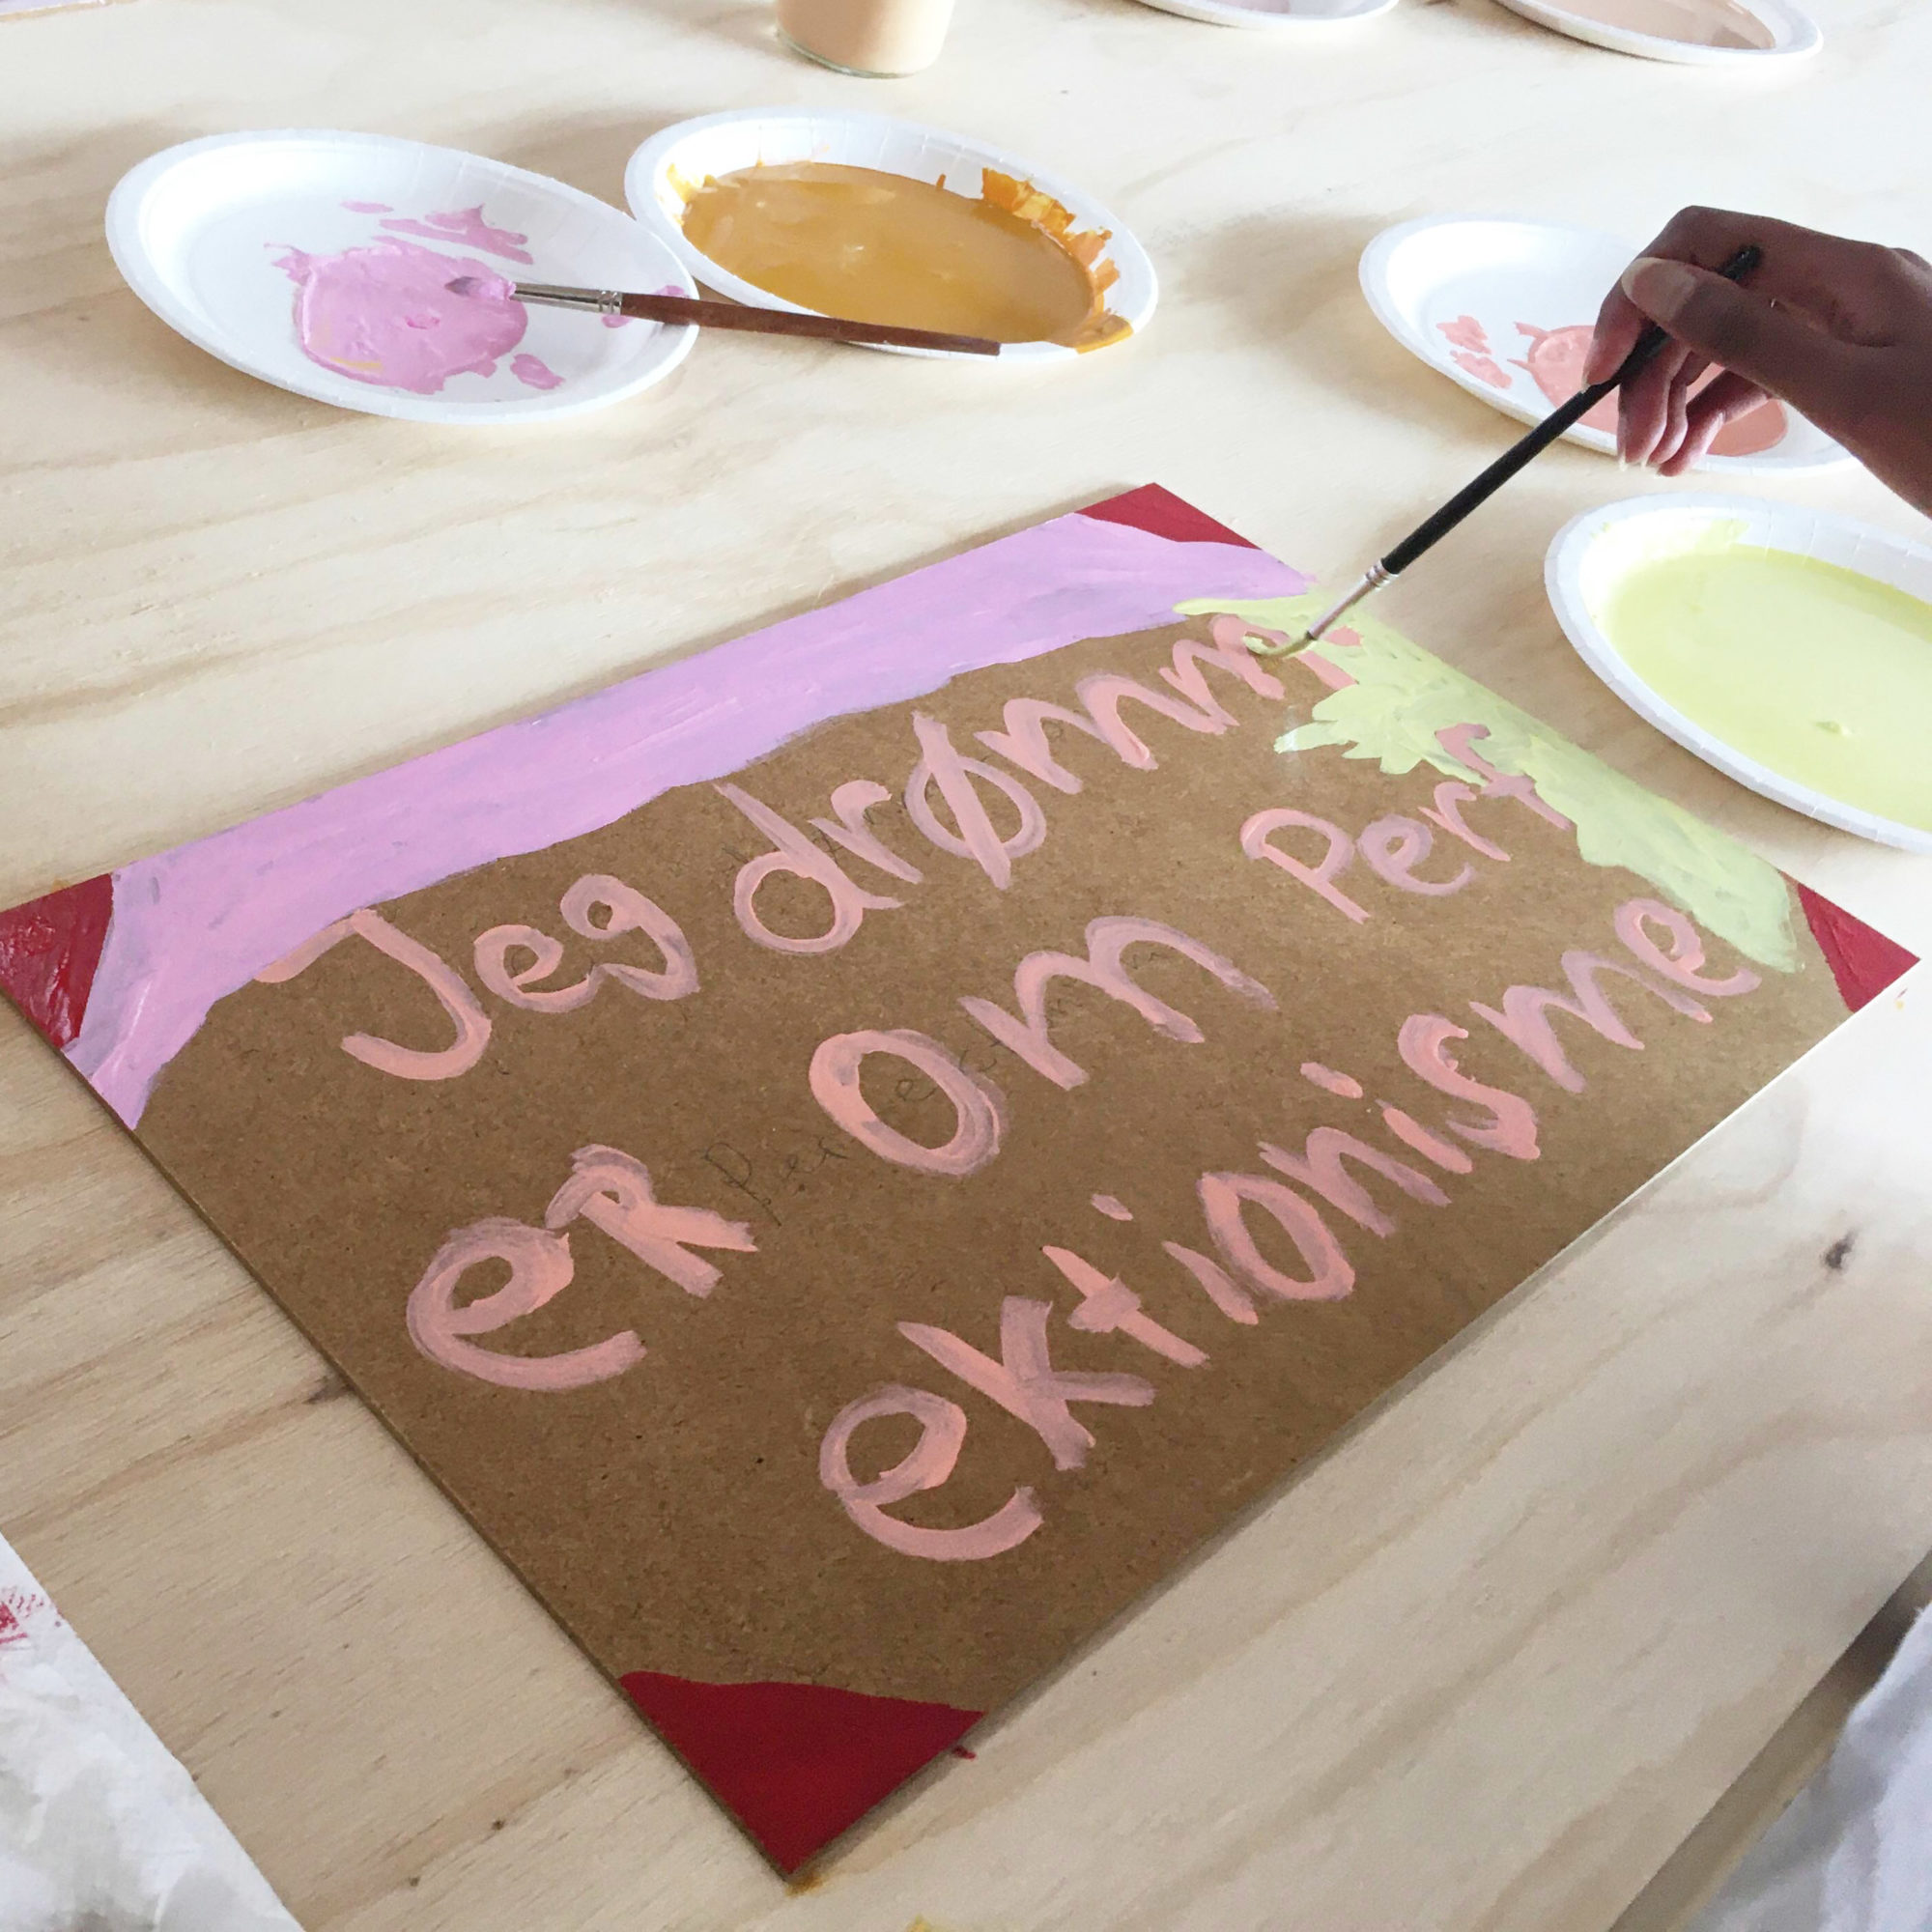 Jeg drømm
eR om Perf
ektionisme